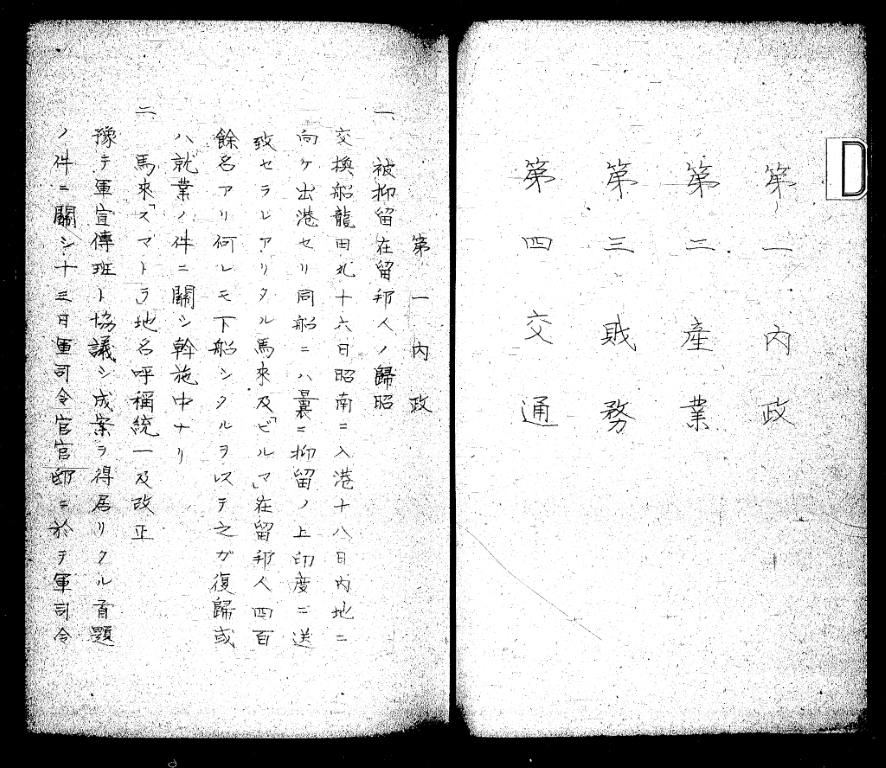 D
第一 内政
第二 産業
第三 財務
第四 交通
第一 内政
一、被抑留在留邦人ノ歸昭
交換船龍田丸十六日昭南ニ入港十八日内地ニ
向ケ出港セリ同船ニハ曩ニ抑留ノ上印度ニ送
致セラレアリタル馬來及「ビルマ」在留邦人四百
餘名アリ何レモ下船シタルヲ以テ之ガ復歸或
ハ就業ノ件ニ關シ斡施中ナリ
二、馬來「スマトラ」地名呼稱統一及改正
豫テ軍宣傳班ト協議シ成案ヲ得居リタル首題
ノ件ニ關シ十三日軍司令官官邸ニ於テ軍司令